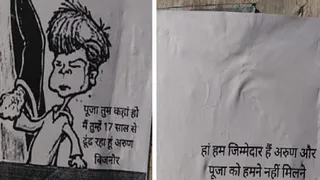 पूजा तुम कहां हो
मैं तुम्हें 17 साल से
ढूंढ रहा हूं अरुण
बिजनौर
हां हम जिम्मेदार हैं अरुण और
पूजा को हमने नहीं मिलने